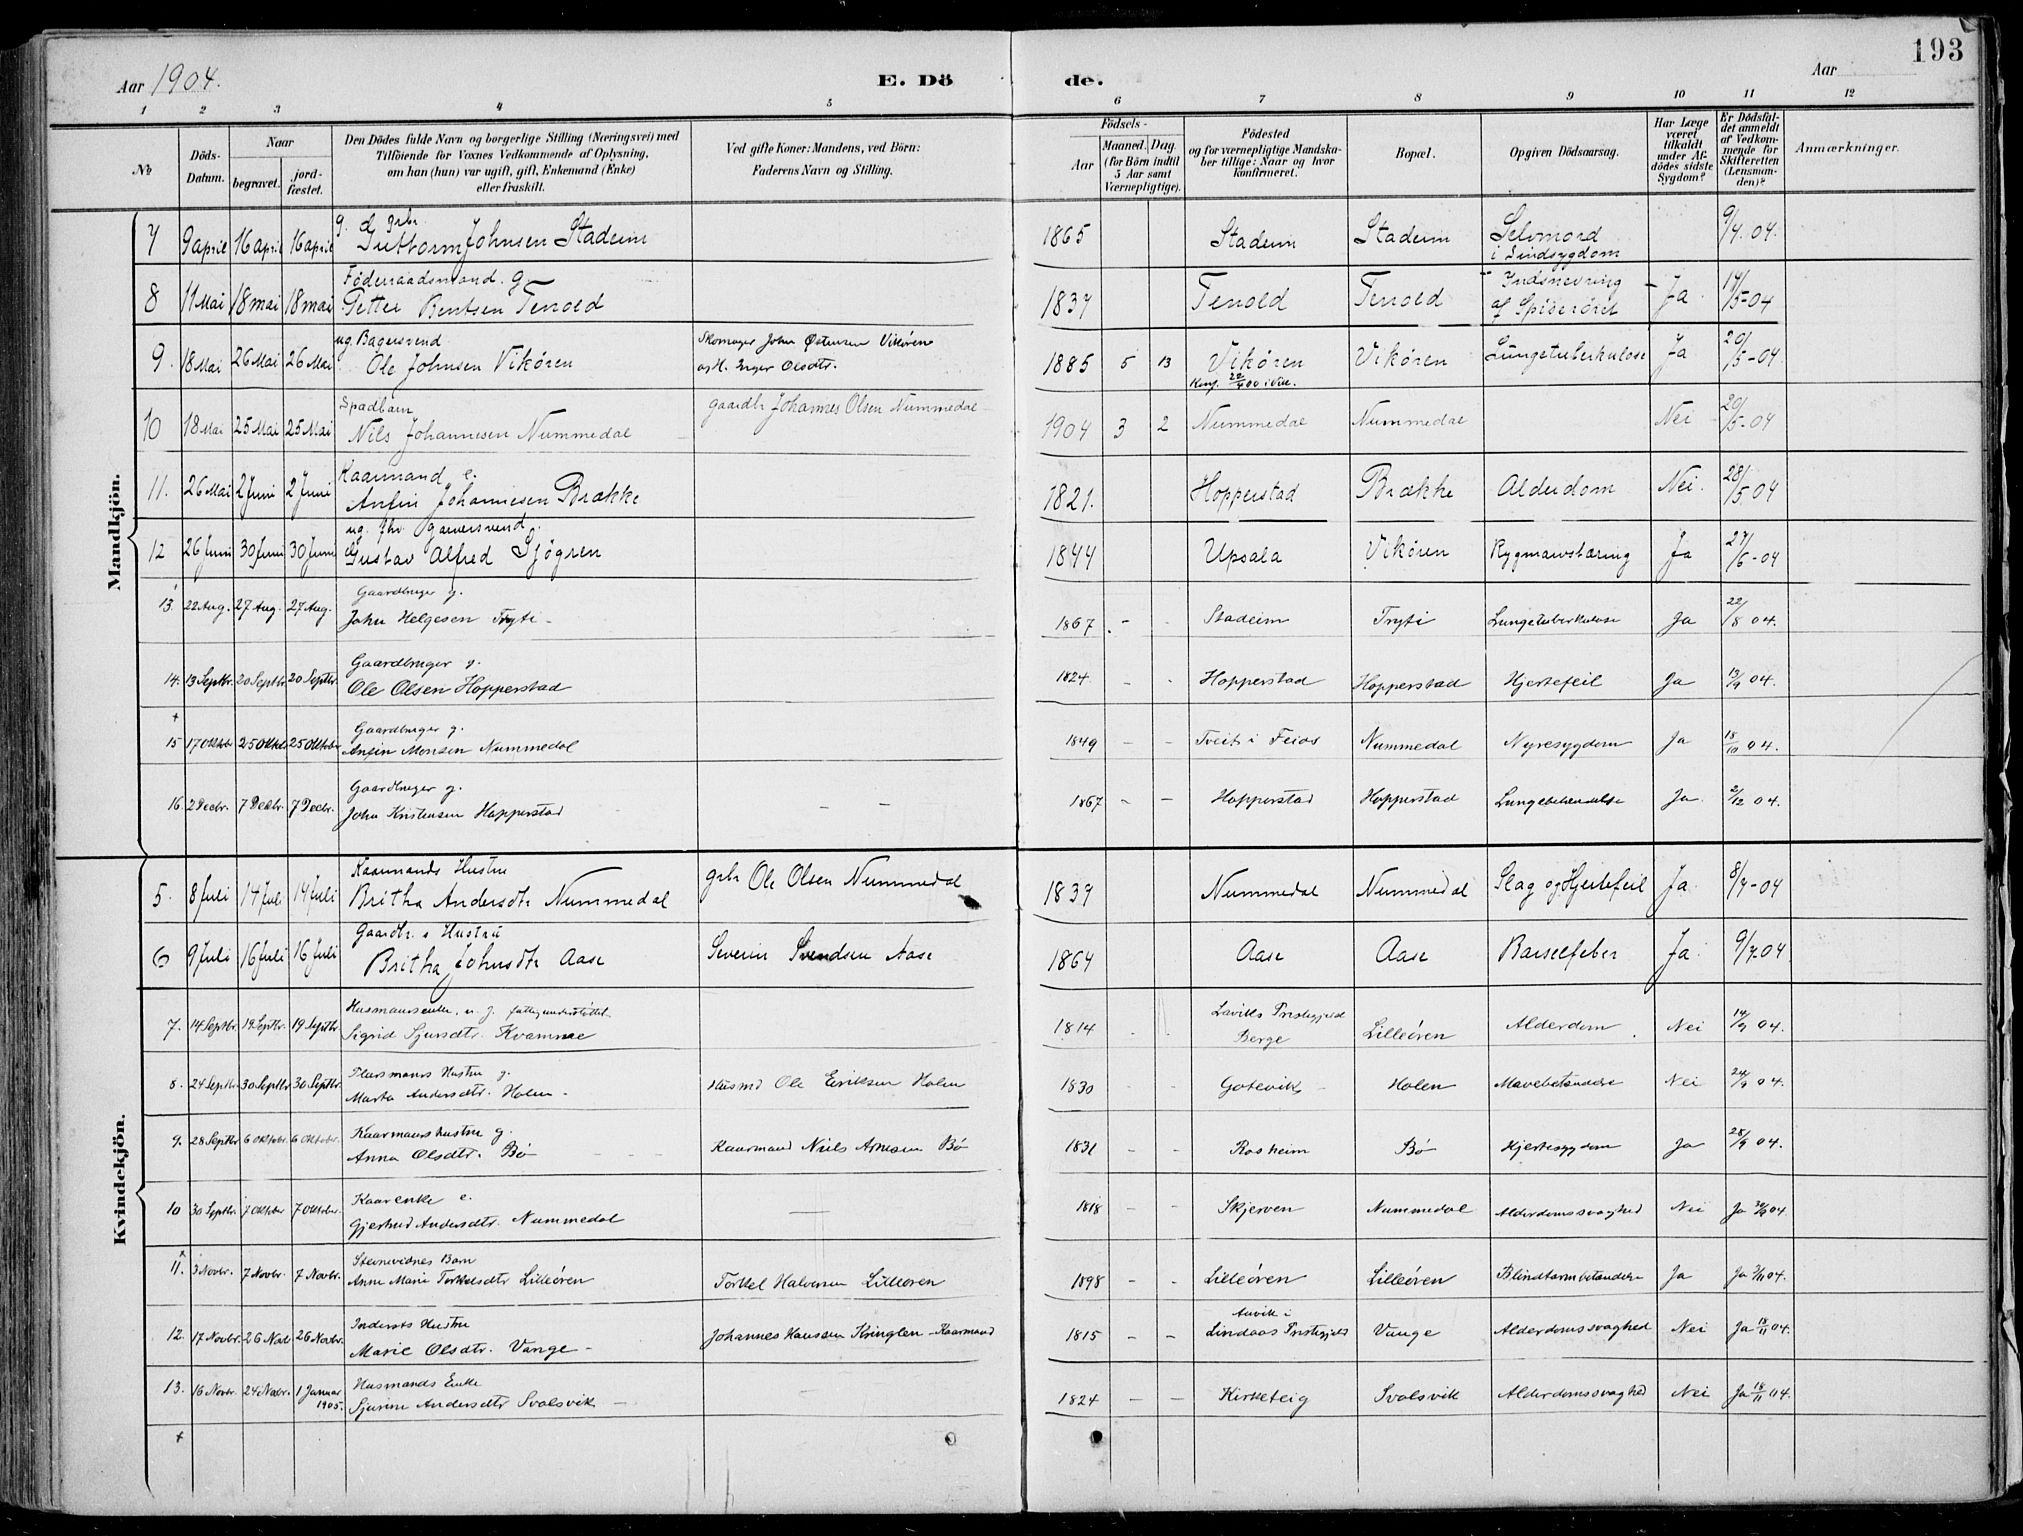 193
Aar 1904. E. Dö de. Aar
1 2 3 4 5 6 7 8 9 10 11 12
№ Döds-Datum. Naar begravet. jord-fæstet. Den Dödes fulde Navn og borgerlige Stilling (Næringsvei) med Tilföiende for Voxnes Vedkommende af Oplysning, om han (hun) var ugift, gift, Enkemand (Enke) eller fraskilt. Ved gifte Koner: Mandens, ved Börn: Faderens Navn og Stilling. Födsels- Aar Maaned. Dag. (for Börn indtil 5 Aar samt Værnepligtige). Födested og for værnepligtige Mandskaber tillige: Naar og hvor konfirmeret. Bopæl. Opgiven Dödsaarsag. Har Læge været tilkaldt under Afdödes sidste Sygdom? Er Dödsfaldet anmeldt af Vedkommende for Skifteretten (Lensmanden)? Anmærkninger.
Mandkjön.
g. grbr.
7 9 april 16 april 16 april Guttorm Johnsen Stadeim 1865 Stadeim Stadeim Selvmord i Sindsygdom 9/4.04.
Föderaadsmand. g
8 11 Mai 18 mai 18 mai Petter Bentsen Tenold 1837 Tenold Tenold Indsnevring af Spiserøret Ja 14/5-04
ug. Bagersvend
9. 18 Mai 26 Mai 26 Mai Ole Johnsen Vikören Skomager John Østensen Vikören og H. Inger Olsdtr. 1885 5 13 Vikören Vikören Lungetuberkulose Ja 20/5-04
Konf. 22/4 00 i Vik.
Spadbarn
10 18 Mai 25 Mai 25 Mai Nils Johannesen Nummedal gaardbr Johannes Olsen Nummedal 1904 3 2 Nummedal Nummedal Nei 20/5-04
Kaarmand e.
11. 26 Mai 2 Juni 2 Juni Anfin Johannesen Brække 1821. Hopperstad Brække Alderdom Nei. 28/5.04
ug. fhv. garversvend.
12 26 Juni 30 Juni 30 Juni Gustav Alfred Sjögren 1844 Upsala Vikören Rygmarvstæring Ja 27/6-04
Gaardbruger g.
13. 22 Aug. 27 Aug. 27 Aug. John Helgesen Tryti - 1867 - - Stadeim Tryti Lungetuberkulose Ja 22/8 04.
Gaardbruger g.
14. 13 Septbr. 20 Septbr. 20 Septbr. Ole Olsen Hopperstad 1824 - - Hopperstad Hopperstad Hjertefeil Ja 13/9 04.
Gaardbruger g.
15 17 Oktbr 25 Oktbr 25 Oktober Anfin Monsen Nummedal 1849 - - Tveit i Feios Nummedal Nyresygdom Ja 18/10 04.
Gaardbruger g.
16. 2 Decbr. 7 Decbr. 7 Decbr. John Kristensen Hopperstad - - 1867 - - Hopperstad Hopperstad Lungebetændelse Ja 2/12 04.
Kvindekjön.
Kaarmands Hustru
5. 8 Juli 14 Juli 14 Juli Britha Andersdtr Nummedal grbr Ole Olsen Nummedal 1839 Nummedal Nummedal Slag og Hjertefeil Ja 8/7-04
Gaardbr.s Hustru
6 9 Juli 16 Juli 16 Juli Britha Johnsdtr Aase Severin Svendsen Aase 1864 Aase Aase Barselfeber Ja 9/7-04
Husmandsenke, fattigunderstöttet
7. 14 Septbr. 19 Septbr. 19 Septbr. Sigrid Sjursdtr. Kvamme 1814 Laviks Præstegjeld Berge Lilleören Alderdom Nei 14/9 04.
Husmans Hustru g.
8. 24 Septbr 30 Septbr 30 Septbr. Marta Andersdtr. Holen - Husmd Ole Eriksen Holen 1830 - - Gotevik Holen Mavebetændelse Nei 24/9 04.
Kaarmanshustru g.
9. 28 Septbr 6 Oktober 6 Oktober. Anna Olsdtr. Bö Kaarmand Niels Arnesen Bö 1831 - - Rosheim Bö Hjertesygdom Ja 28/9 04.
Kaarenke e.
10 30 Septbr. 7 Oktober 7 Oktober. Gjertrud Andersdtr. Nummedal 1818 - - Skjerven Nummedal Alderdomssvaghed Nei Ja 30/9 04
Stevnevidnes Barn
11. 3 Novbr. 7 Novbr. 7 Novbr. Anne Marie Torkelsdtr Lilleören Torkel Halvorsen Lilleören 1898 - - Lilleören Lilleören Blindtarmbetændelse Ja Ja 3/11 04.
Indersts Hustru
12. 17 Novbr. 26 Novb 26 Novbr. Marie Olsdtr. Vange - Johannes Hanssen Kringlen - Kaarmand 1815 - - Lindaas Prstegjeld Vange Alderdomssvaghed Nei Ja 18/11 04.
Husmands Enke
13. 16 Novbr. 24 Novbr. 1 Januar 1905. Sjurine Andersdtr Svolsvik - 1824 - - Kirketeig Svolsvik Alderdomssvaghed Nei Ja 18/11 04.